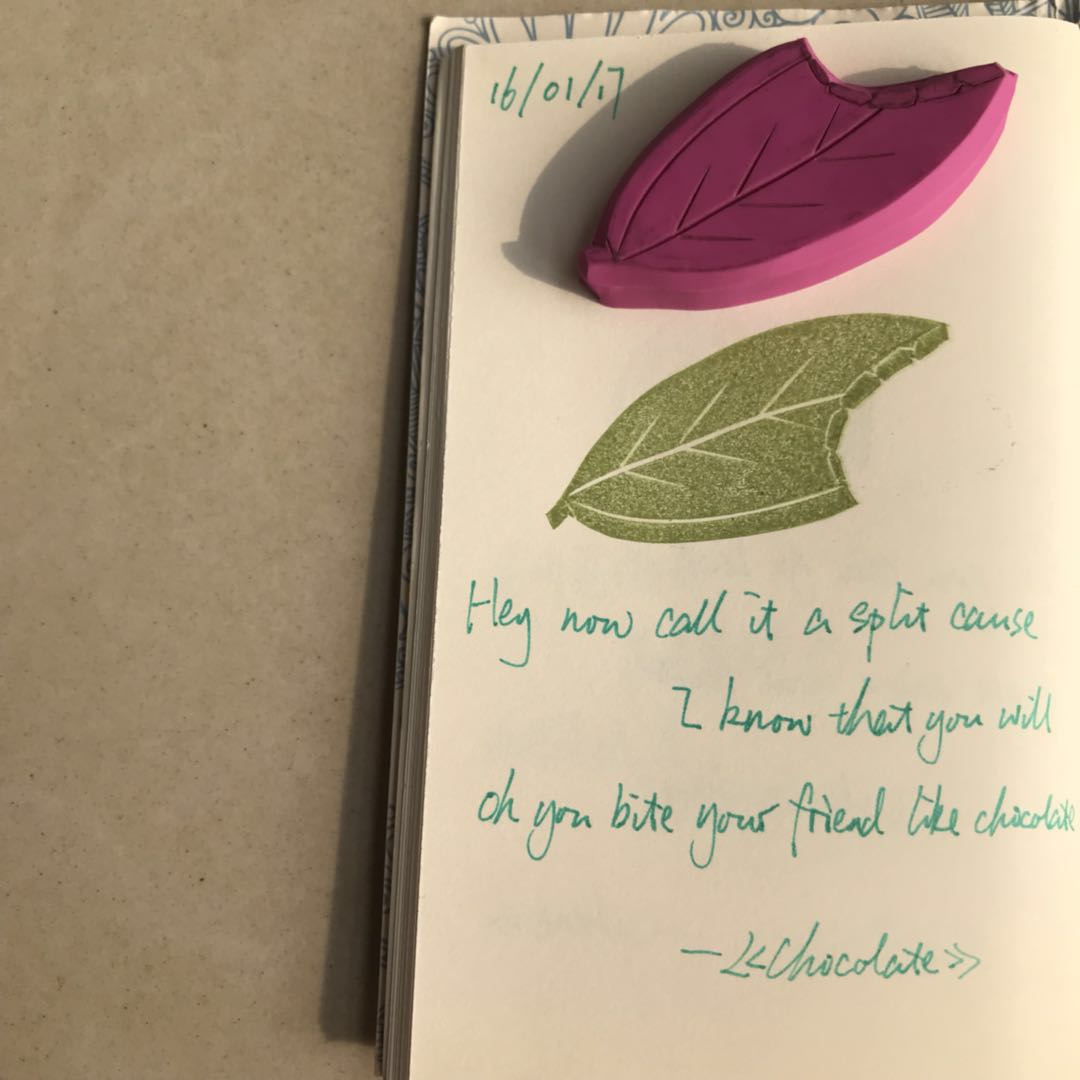 16/01/17
Hey now call it a split cause
I know that you will
oh you bite your friend like chocolate
—《Chocolate》